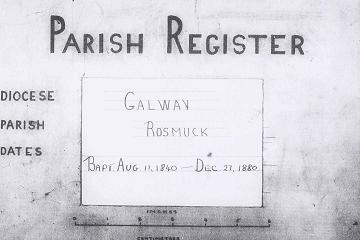 PARISH REGISTER
DIOCESE GALWAY
PARISH ROSMUCK
DATES BAPT. AUG. 11, 1840 — DEC. 27, 1880.
INCHES
CENTIMETRES